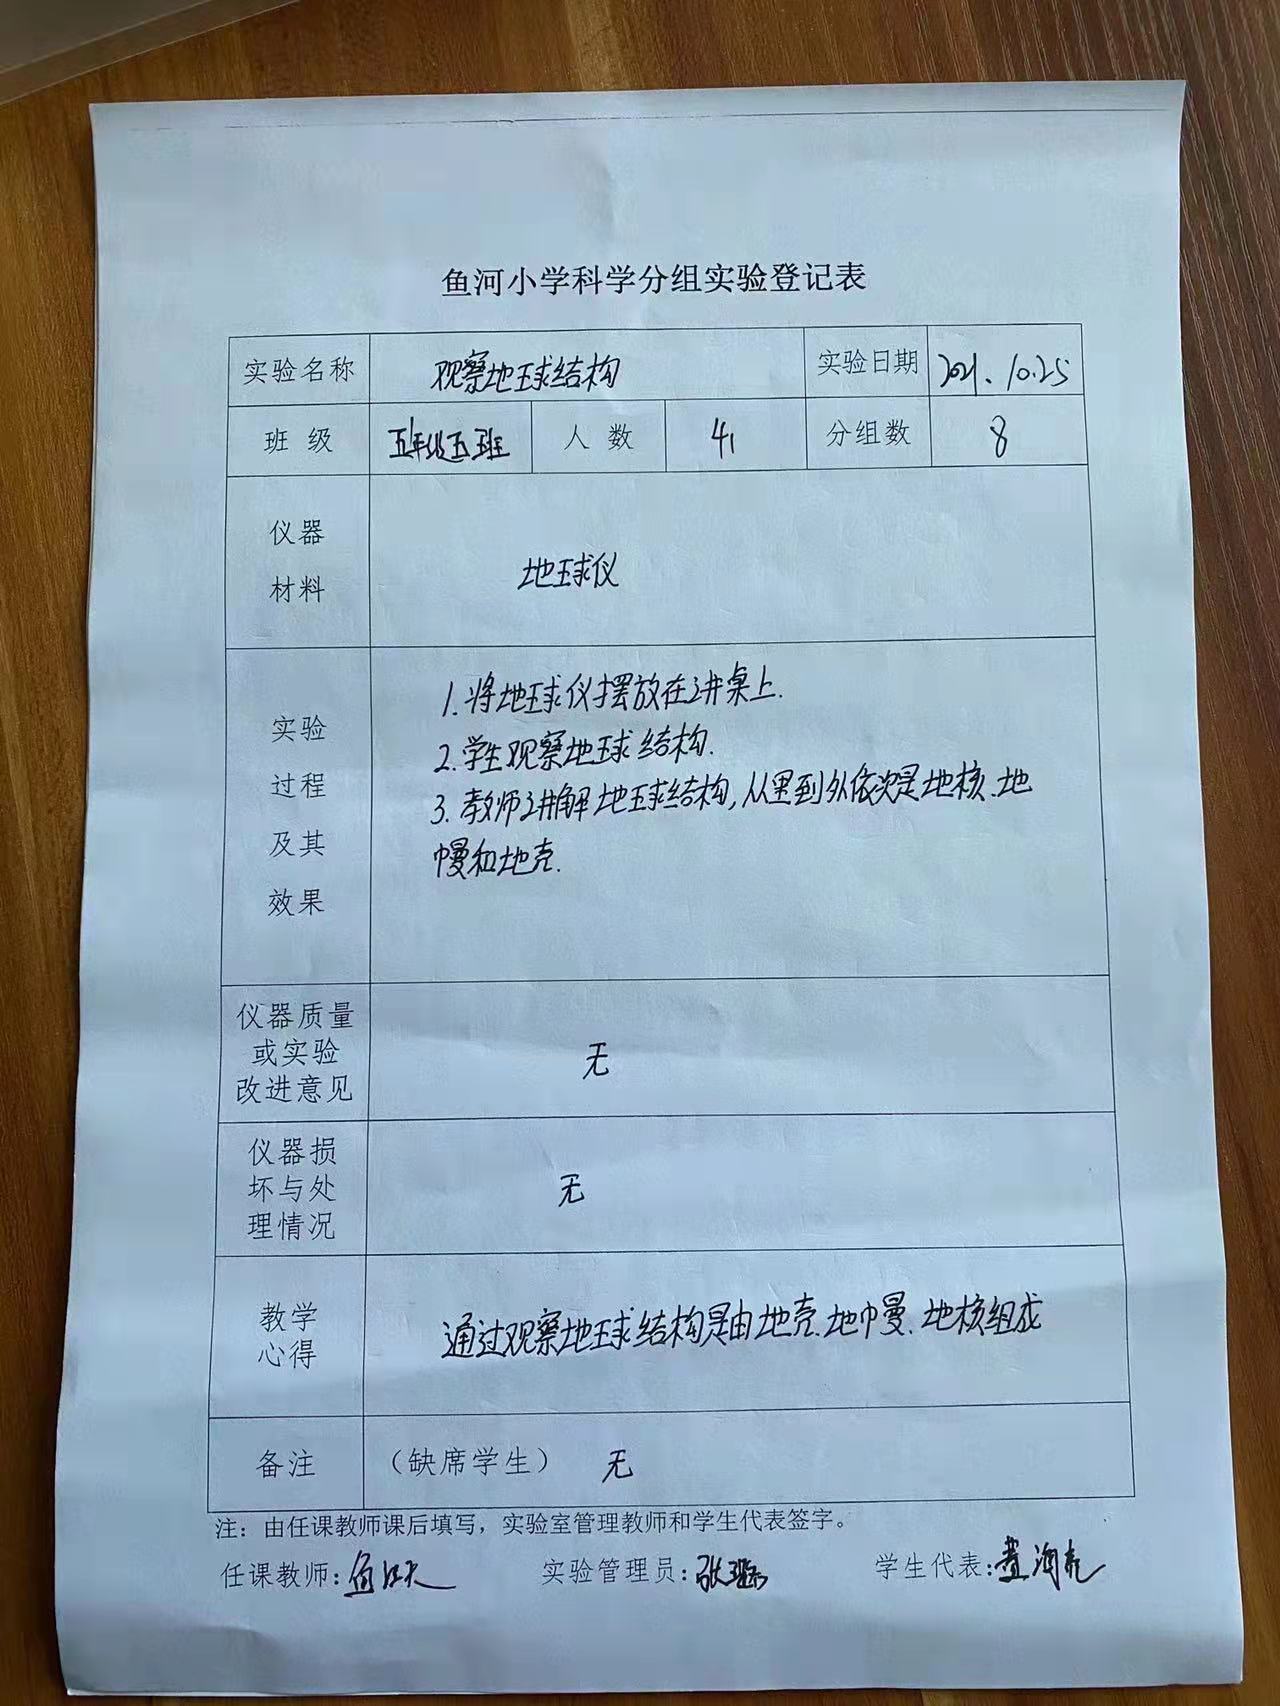 鱼河小学科学分组实验登记表
实验名称 观察地球结构 实验日期 2021.10.25
班 级 五年级五班 人 数 41 分组数 8
仪器
材料
地球仪
实验
过程
及其
效果
1.将地球仪摆放在讲桌上.
2.学生观察地球结构.
3.教师讲解地球结构,从里到外依次是地核、地
幔和地壳.
仪器质量
或实验
改进意见
无
仪器损
坏与处
理情况
无
教学
心得
通过观察地球结构是由地壳、地幔、地核组成
备注 (缺席学生) 无
注：由任课教师课后填写，实验室管理教师和学生代表签字。
任课教师: 实验管理员:张 学生代表: